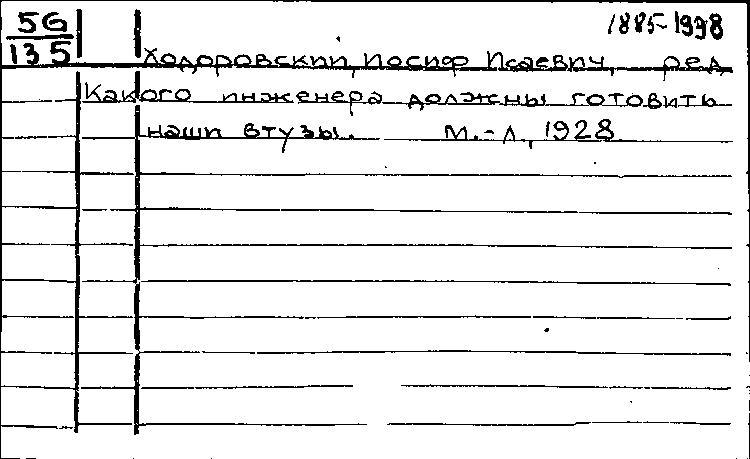 56
135
1885-1938
Ходоровский, Иосиф Исаевич, ред.
Какого инженера должны готовить
наши втузы. М.-Л., 1928